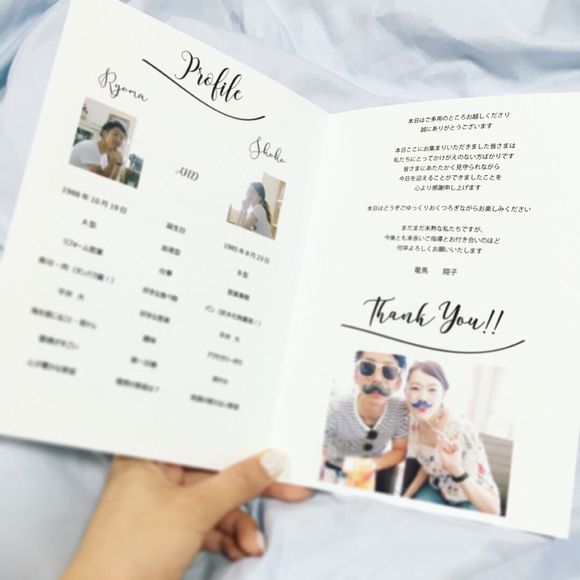 Profile
Ryoma
Shoko
AND
1988年10月19日
誕生日
1985年9月23日
A型
血液型
B型
リフォーム営業
仕事
営業事務
好きな食べ物
好きな音楽
平井 大
平井 大
趣味
第一印象
本日はご多用のところお越しくださり
誠にありがとうございます
本日ここにお集まりいただきました皆さまは
私たちにとってかけがえのない方ばかりです
皆さまにあたたかく見守られながら
今日を迎えることができましたことを
心より感謝申し上げます
本日はどうぞごゆっくりおくつろぎながらお楽しみください
まだまだ未熟な私たちですが、
今後とも末永いご指導とお付き合いのほど
何卒よろしくお願いいたします
竜馬 翔子
Thank You!!